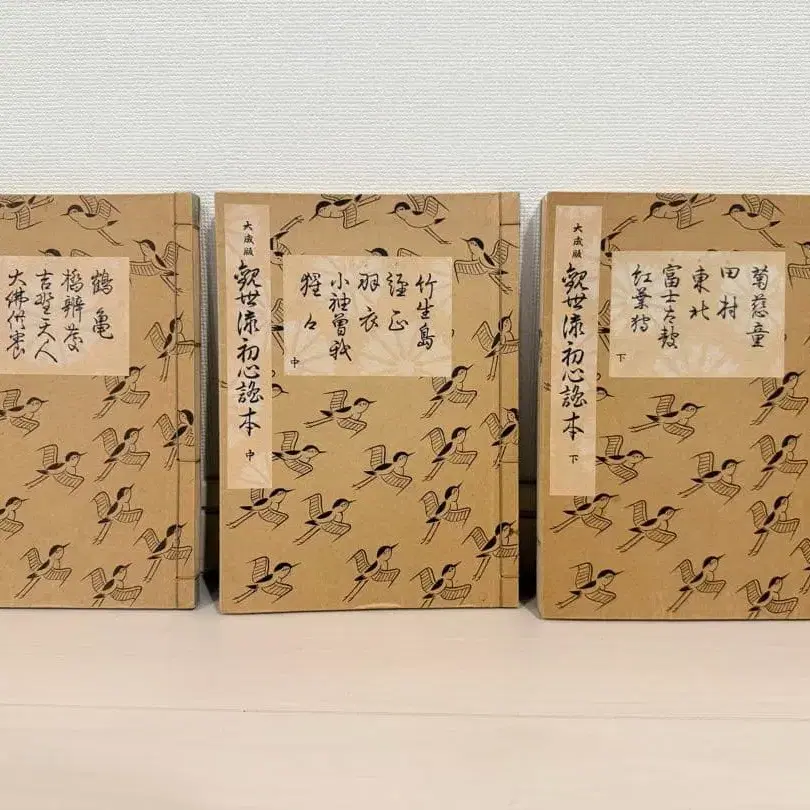 鶴亀
橋辨慶
吉野天人
大佛供養
大成版 觀世流初心謠本 中
竹生島
經正
羽衣
小袖曾我
猩々
中
大成版 觀世流初心謠本 下
菊慈童
田村
東北
富士太鼓
紅葉狩
下